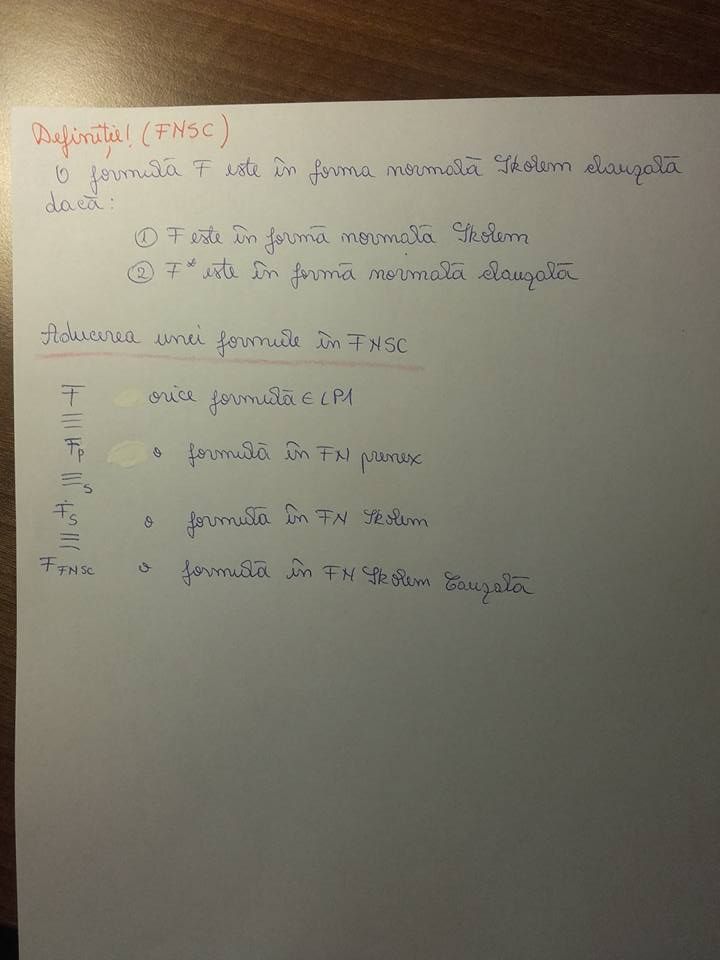 Definiție! (FNSC)
O formulă F este în forma normală Skolem clauzală
dacă:
① F este în formă normală Skolem
② F* este în formă normală clauzală
Aducerea unei formule în FNSC
F orice formulă ∈ LP1
≡
Fp o formulă în FN prenex
≡s
Fs o formulă în FN Skolem
≡
F FNSC o formulă în FN Skolem Cauzală